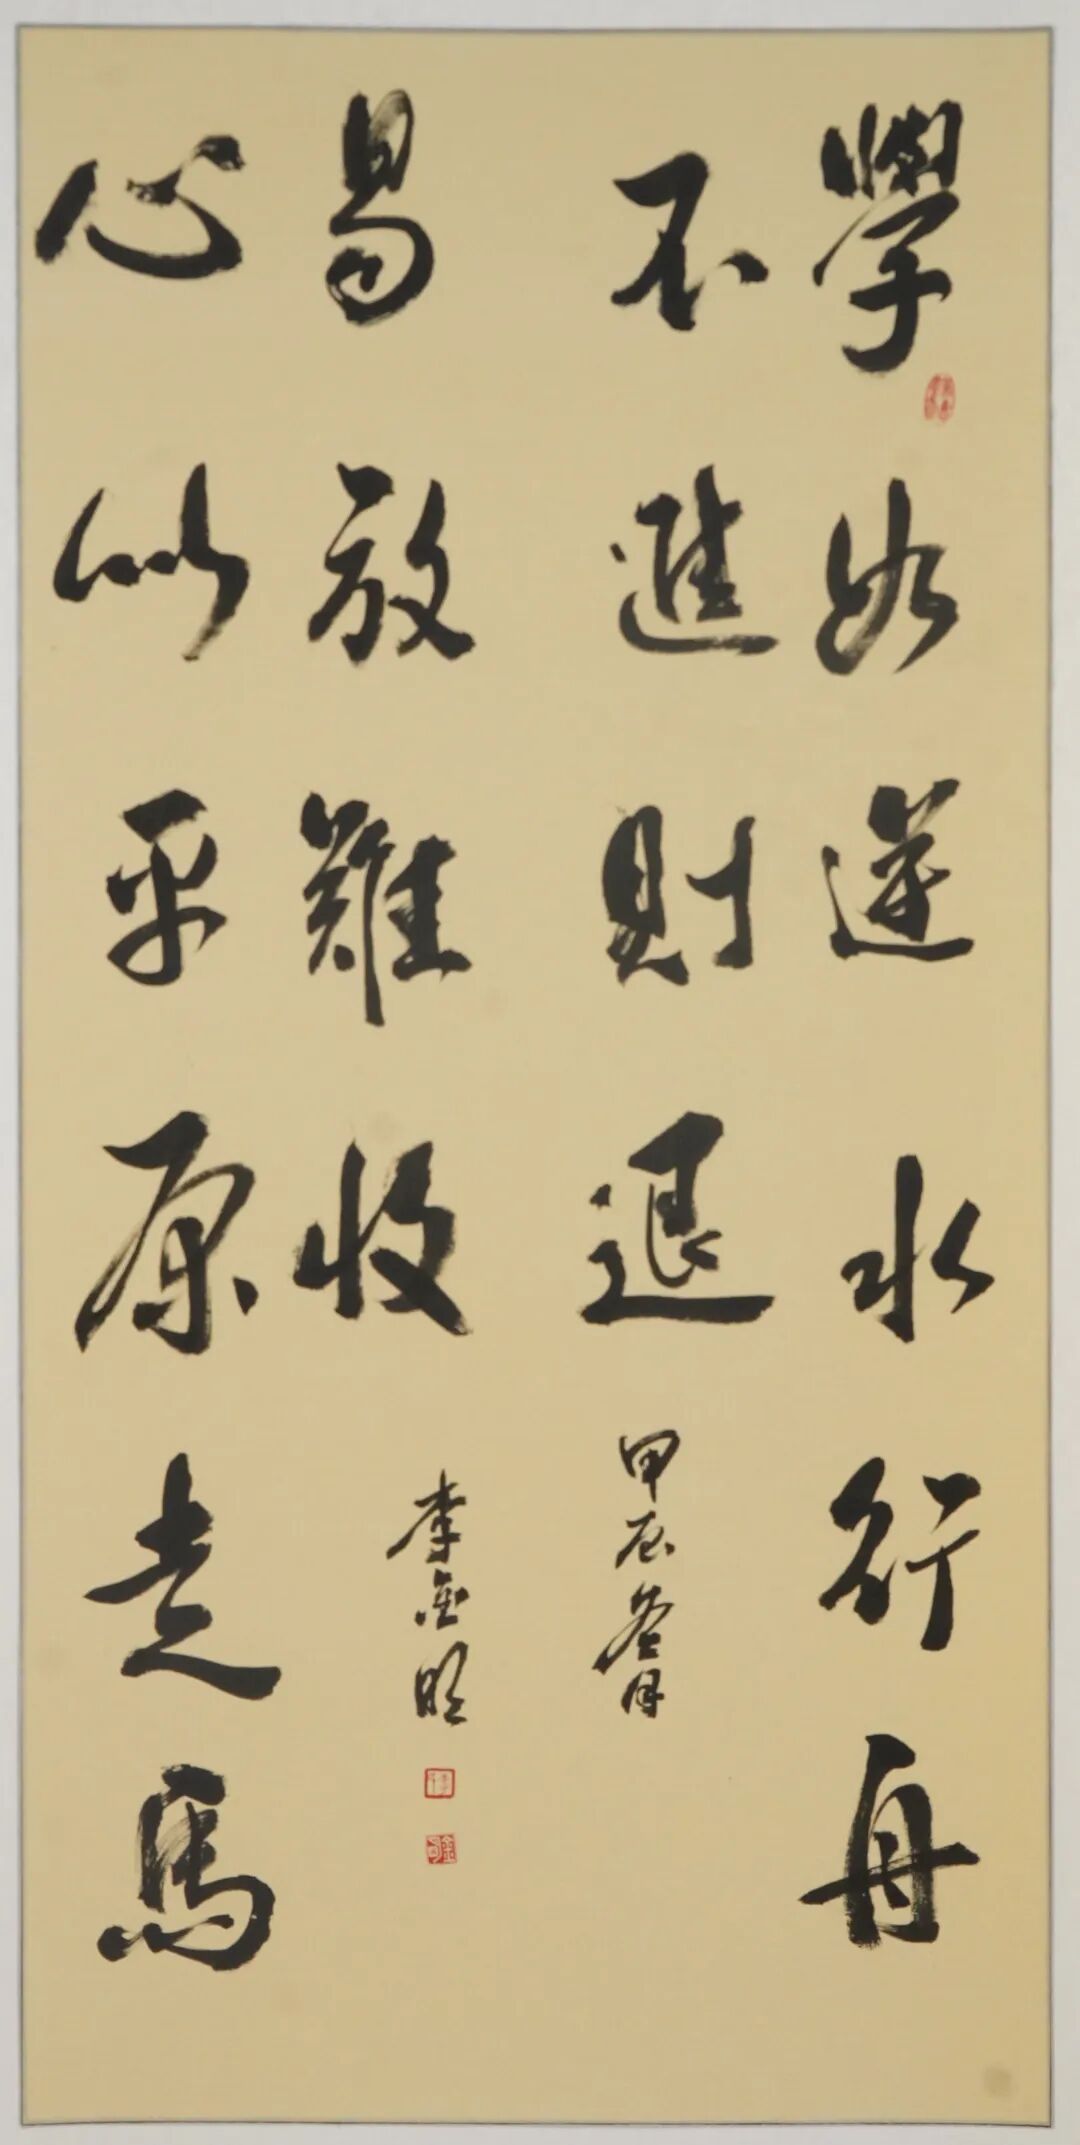 學如逆水行舟
不進則退
甲辰冬月
心似平原走馬
易放難收
李金明